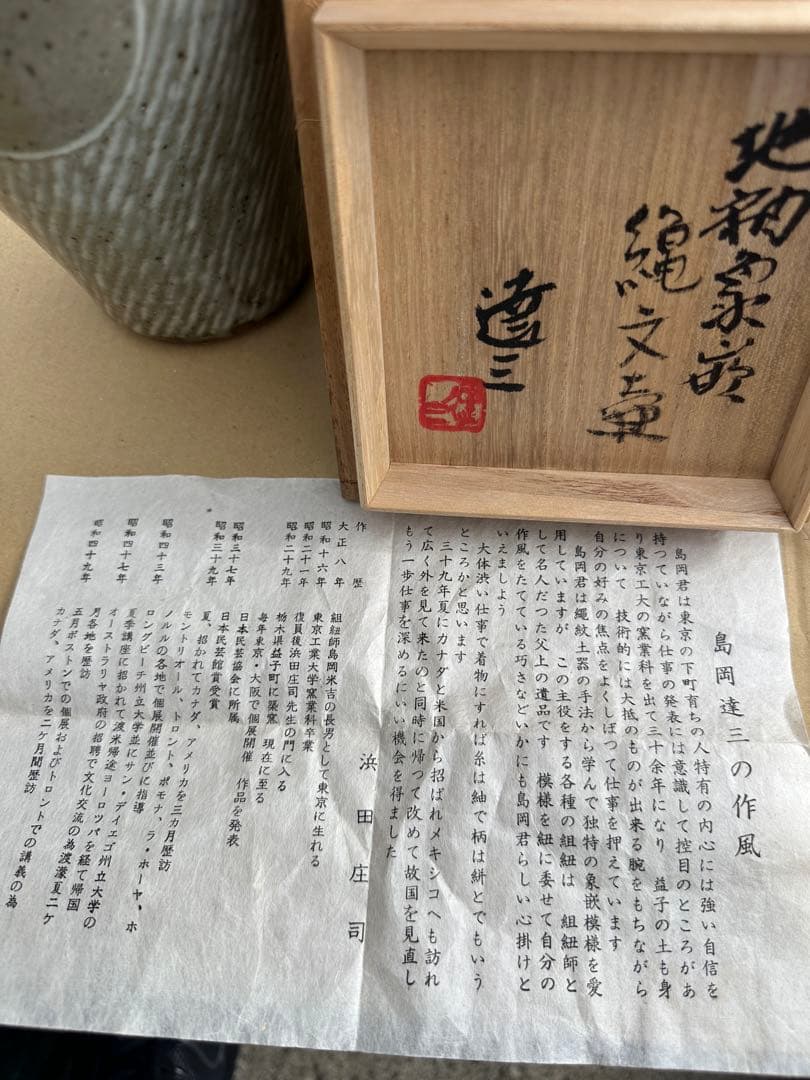 地釉象嵌
縄文壷
達三
島岡達三の作風
島岡君は東京の下町育ちの人特有の内心には強い自信を
持つていながら仕事の発表には意識して控目のところがあ
り東京工大の窯業科を出て三十余年になり 益子の土も身
について 技術的には大抵のものが出来る腕をもちながら
自分の好みの焦点をよくしぼつて仕事を押えています
島岡君は縄紋土器の手法から学んで独特の象嵌模様を愛
用していますが この主役をする各種の組紐は 組紐師と
して名人だつた父上の遺品です 模様を紐に委せて自分の
作風をたてている巧さなどいかにも島岡君らしい心掛けと
いえましよう
大体渋い仕事で着物にすれば糸は紬で柄は絣とでもいう
ところかと思います
三十九年夏にカナダと米国から招ばれメキシコへも訪れ
て広く外を見て来たのと同時に帰つて改めて故国を見直し
もう一歩仕事を深めるにいい機会を得ました
浜田庄司
作歴
大正八年 組紐師島岡米吉の長男として東京に生れる
昭和十六年 東京工業大学窯業科卒業
昭和二十一年 復員後浜田庄司先生の門に入る
昭和二十九年 栃木県益子町に築窯 現在に至る
毎年東京・大阪で個展開催 作品を発表
昭和三十七年 日本民芸協会に所属
日本民芸館賞受賞
昭和三十九年 夏、招かれてカナダ、アメリカを三カ月歴訪
モントリオール、トロント、ポモナ、ラ・ホーヤ、ホ
ノルルの各地で個展開催並びに指導
昭和四十三年 ロングビーチ州立大学並にサン・デイエゴ州立大学の
夏季講座に招かれて渡米帰途ヨーロツパを経て帰国
昭和四十七年 オーストラリヤ政府の招聘で文化交流の為渡濠夏二ケ
月各地を歴訪
昭和四十九年 五月ボストンでの個展およびトロントでの講義の為
カナダ、アメリカを二ケ月間歴訪